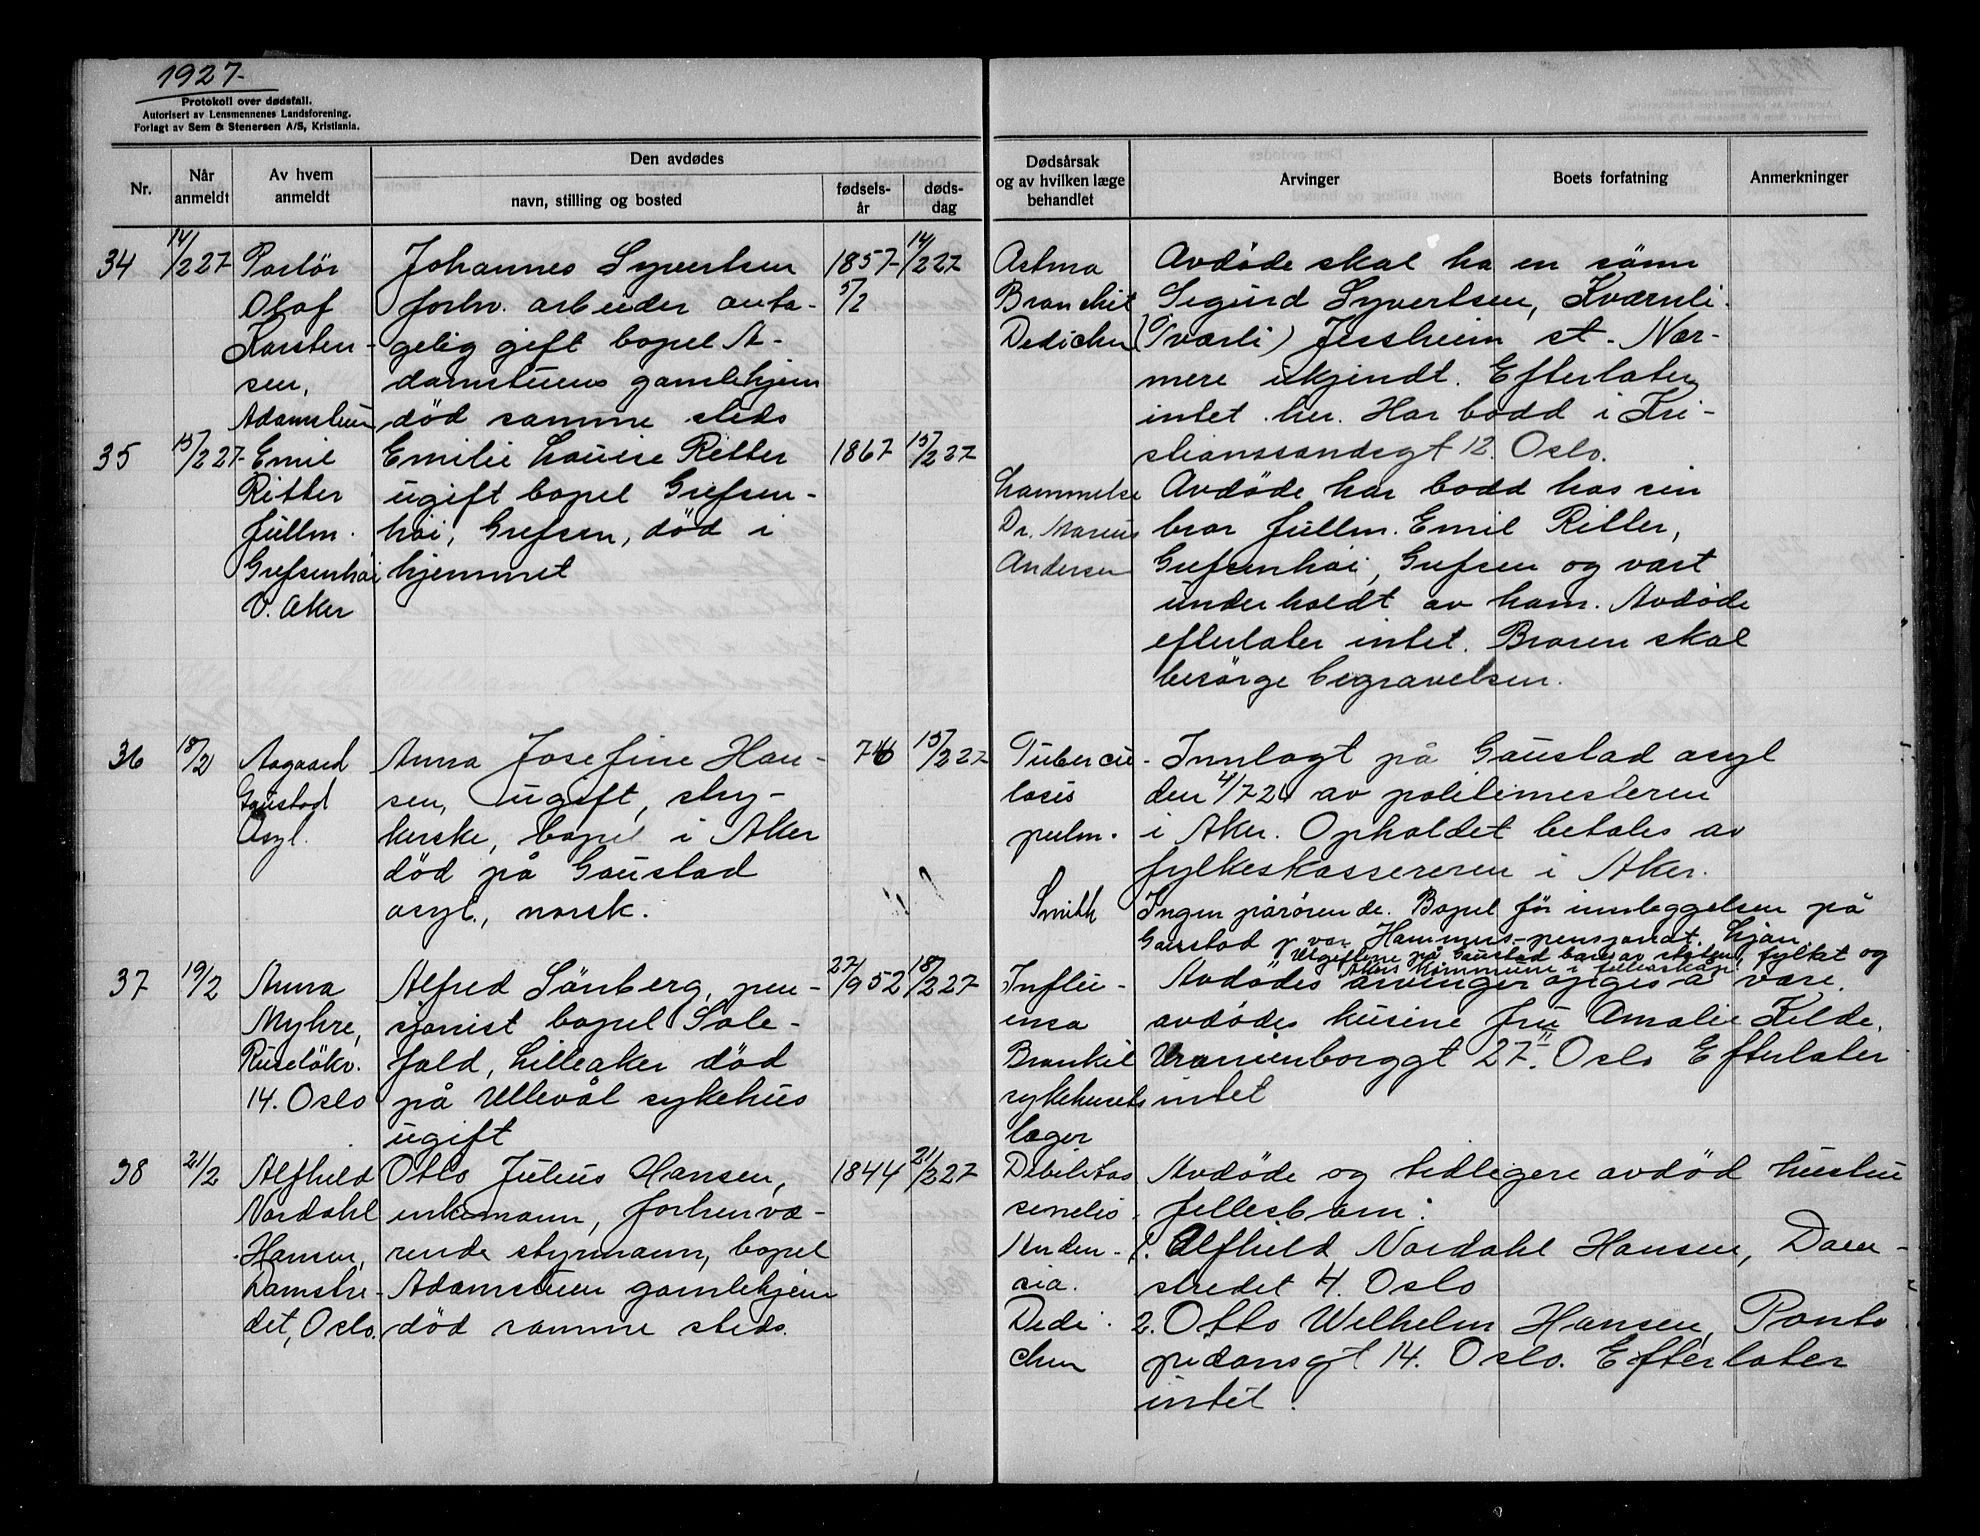 1927-
Protokoll over dødsfall.
Autorisert av Lensmennenes Landsforening.
Forlagt av Sem & Stenersen A/S, Kristiania.
Nr.
Når anmeldt
Av hvem anmeldt
Den avdødes
navn, stilling og bosted
fødsels-år
døds-dag
Dødsårsak og av hvilken læge behandlet
Arvinger
Boets forfatning
Anmerkninger
34
14/2 27-
Portör
Olaf
Karsten-
sen,
Adamstuen
Johannes Syvertsen
forhv. arbeider anta-
gelig gift bopel A-
damstuens gamlehjem
död samme steds
1857-
5/2
14/2 27
Astma
Bronchit
Dedichen
Avdøde skal ha en sönn
Sigurd Syvertsen, Kværnli
(Tværli) Jessheim st. Nær-
mere ukjendt. Efterlater
intet her. Har bodd i Kri-
stianssandsgt 12. Oslo.
35
15/2 27-
Emil
Ritter
fullm.
Grefsenhöi
V. Aker
Emilie Louise Ritter
ugift bopel Grefsen-
höi, Grefsen, död i
hjemmet
1867
15/2 27
Lammelse
Dr. Marius
Andersen
Avdøde har bodd hos sin
bror fullm. Emil Ritter,
Grefsenhöi, Grefsen og vært
underholdt av ham. Avdøde
efterlater intet. Broren skal
besörge begravelsen.
36
18/2
Aagaard
Gaustad
Asyl.
Anna Josefine Han-
sen, ugift, stry-
kerske, bopel i Aker
död på Gaustad
asyl, norsk.
76
15/2 27
Tubercu-
losis
pulm.
Smith
Innlagt på Gaustad asyl
den 4/7 2 av politimesteren
i Aker. Opholdet betales av
fylkeskassereren i Aker.
Ingen pårörende. Bopel för innleggelsen på
Gaustad var Hammers-pensjonat. Ljan.
Utgiftene på Gaustad bæres av staten, fylket og
Akers kommune i fellesskap
37
19/2
Anna
Myhre,
Ruselökv.
14. Oslo
Alfred Sönberg, pen-
sjonist bopel Sole-
fald, Lilleaker död
på Ullevål sykehus
ugift
27/9 52
18/2 27
Influ-
ensa
Bronkit
sykehusets
læger
Avdödes arvinger opgis å være.
avdødes kusine fru Amalie Kilde,
Uranienborggt 27 II. Oslo Efterlater
intet
38
21/2
Alfhild
Nordahl
Hansen,
Damstre-
det, Oslo.
Otto Julius Hansen,
enkemann, forhenvæ-
rende styrmann, bopel
Adamstuen gamlehjem
död samme steds.
1844
21/2 27
Debilitas
senelis
Dedi-
chen
Avdöde og tidligere avdöd hustru
fellesbarn:
1. Alfhild Nordahl Hansen, Dam-
stredet 4. Oslo
2. Otto Wilhelm Hansen, Ponto
pidansgt 14. Oslo. Efterlater
intet.